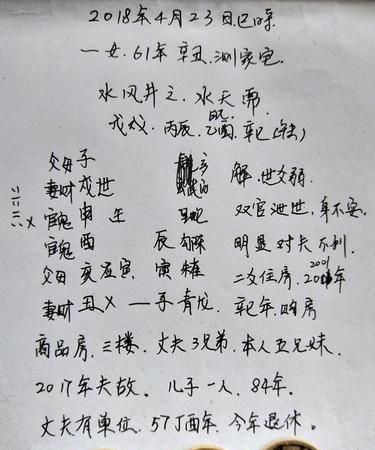 2018年4月23日巳时
一女.61年辛丑.测家宅
水风井之水天需
戊戌.丙辰.乙酉.辛巳
父母子 解.世爻弱.
妻财戌世
官鬼申 双官泄世,身不安.
官鬼酉 辰勾陈 明显对夫不利.
父母亥应寅 寅朱雀 二爻住房.2001年
妻财丑X—子青龙 辛巳年.购房
商品房.三楼.丈夫3兄弟.本人五兄妹.
2017年夫故.儿子一人.84年.
丈夫有单位.57丁酉年.今年退休。